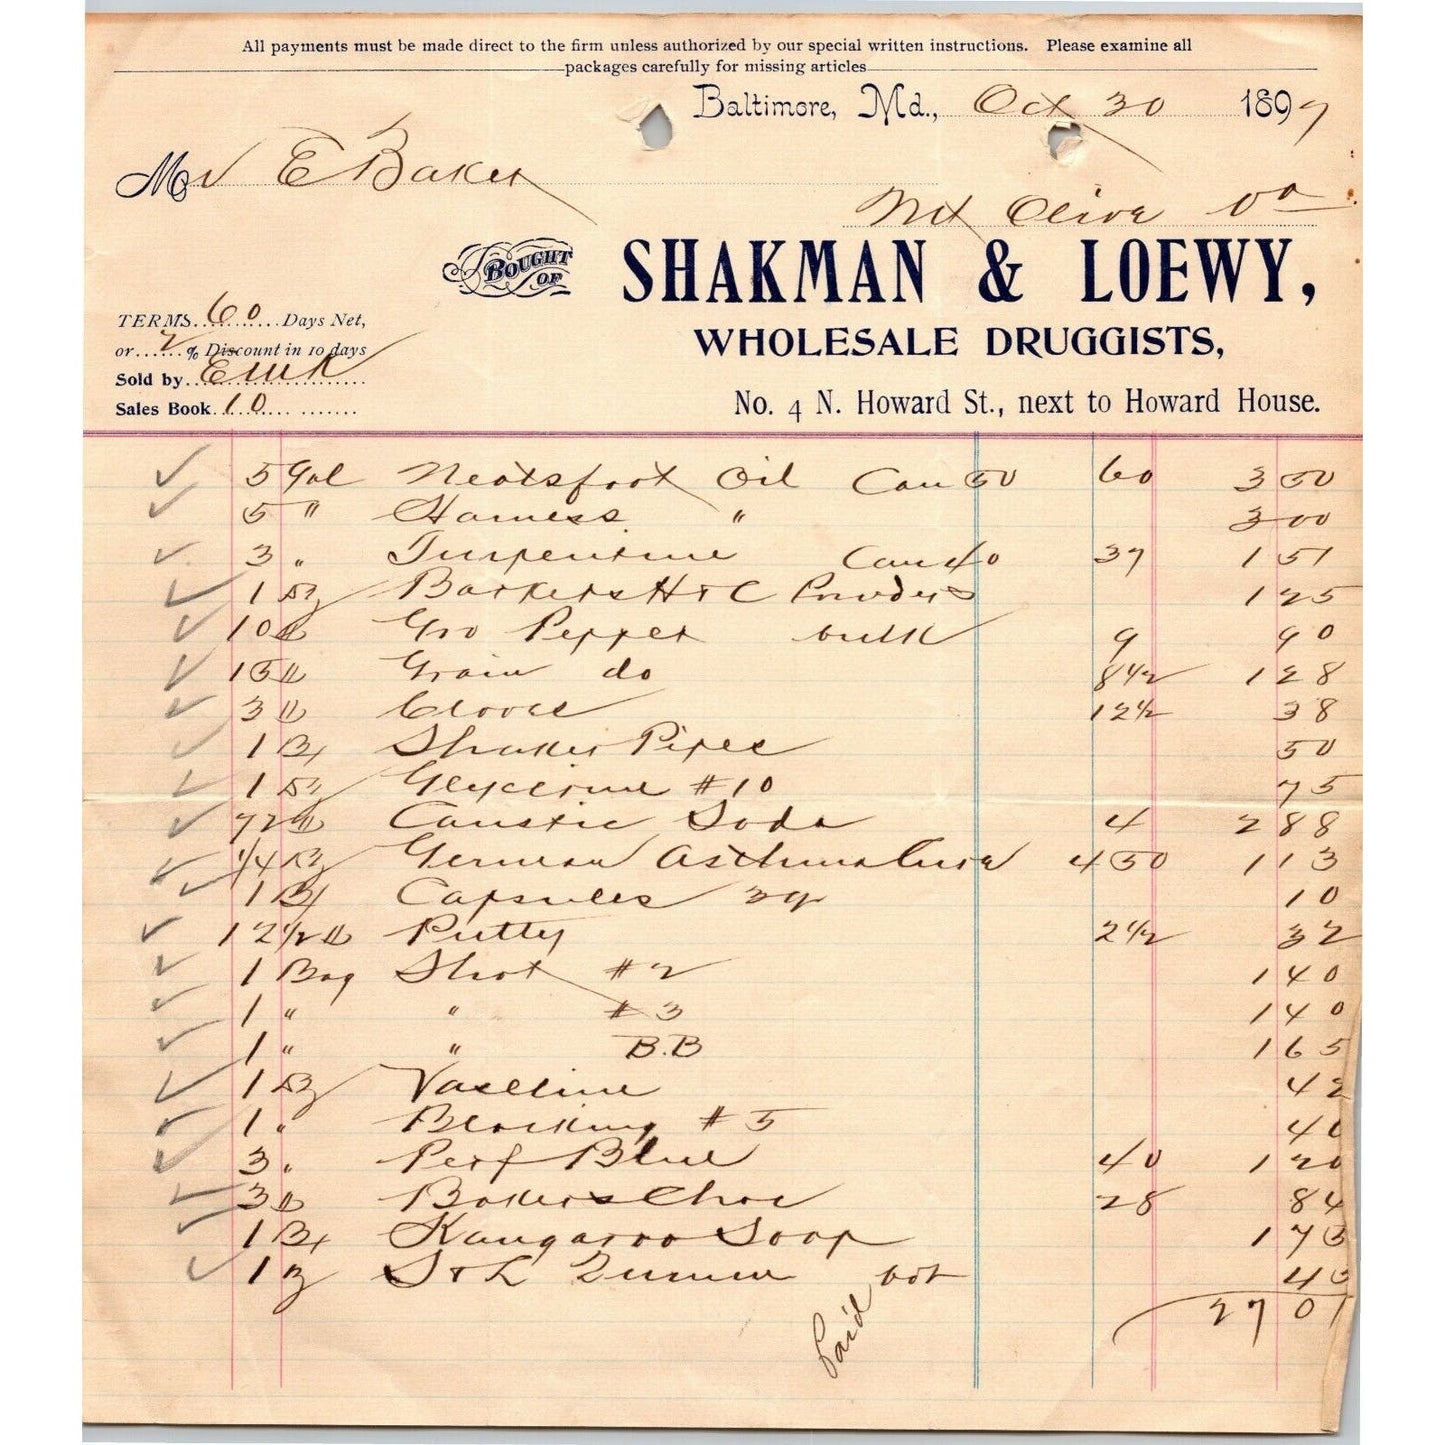 All payments must be made direct to the firm unless authorized by our special written instructions. Please examine all
packages carefully for missing articles
Baltimore, Md., Oct 30 1897
Mr E Baker
Mt Olive Va
BOUGHT OF
SHAKMAN & LOEWY,
WHOLESALE DRUGGISTS,
No. 4 N. Howard St., next to Howard House.
TERMS 60 Days Net,
or 2 % Discount in 10 days
Sold by
Sales Book 10
5 Gal Neatsfoot Oil Can 50 60 3 50
5 " Harness " 3 00
3 " Turpentine Can 40 37 1 51
1 Dz Barkers H & C Powders 1 25
10 lb Gro Pepper bulk 9 90
15 lb Grain do 8 1/2 1 28
3 lb Cloves 12 1/2 38
1 Bx Shaker Pipes 50
1 Dz Glycerine #10 75
72 lb Caustic Soda 4 2 88
1/4 Dz German Asthma Cure 4 50 1 13
1 Bx Capsules 3 gr 10
12 1/2 lb Putty 2 1/2 32
1 Bag Shot #2 1 40
1 " " #3 1 40
1 " " B.B 1 65
1 Dz Vaseline 42
1 " Blacking #5 40
3 " Perf Blue 40 1 20
3 lb Bakers Choc 28 84
1 Bx Kangaroo Soap 1 75
1 S & L bot 45
27 01
Paid